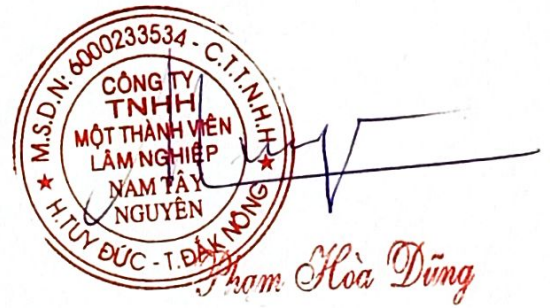 M.S.D.N: 6000233534 - C.T.T.N.H.H
CÔNG TY
TNHH
MỘT THÀNH VIÊN
LÂM NGHIỆP
NAM TÂY
NGUYÊN
H.TUY ĐỨC - T.ĐẮK NÔNG
Phạm Hòa Dũng